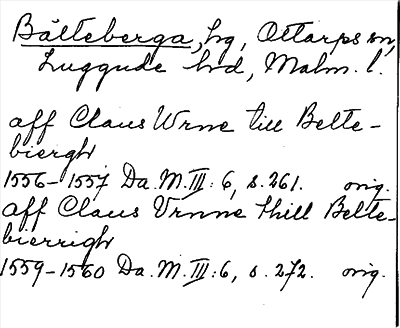 Bälteberga, hg, Ottarps sn,
Luggude hd, Malm. l.
aff Claus Wrne till Belte-
biergh
1556-1557 Da. M. III: 6, s. 261. orig.
aff Claus Vrnne thill Belte-
bierrigh
1559-1560 Da. M. III: 6, s. 272. orig.